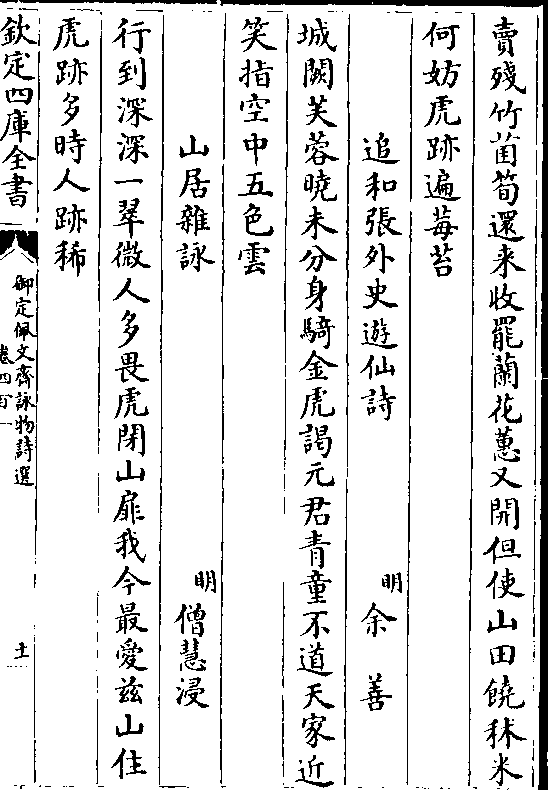 賣殘竹菌筍還来收罷蘭花蕙又開但使山田饒秫米
何妨虎跡遍莓苔
追和張外史遊仙詩
明余善
城闕芙蓉曉未分身騎金虎謁元君青童不道天家近
笑指空中五色雲
山居雜詠
明僧慧浸
行到深深一翠微人多畏虎閉山扉我今最愛兹山住
虎跡多時人跡稀
欽定四庫全書
御定佩文齋詠物詩選
卷四百一
十